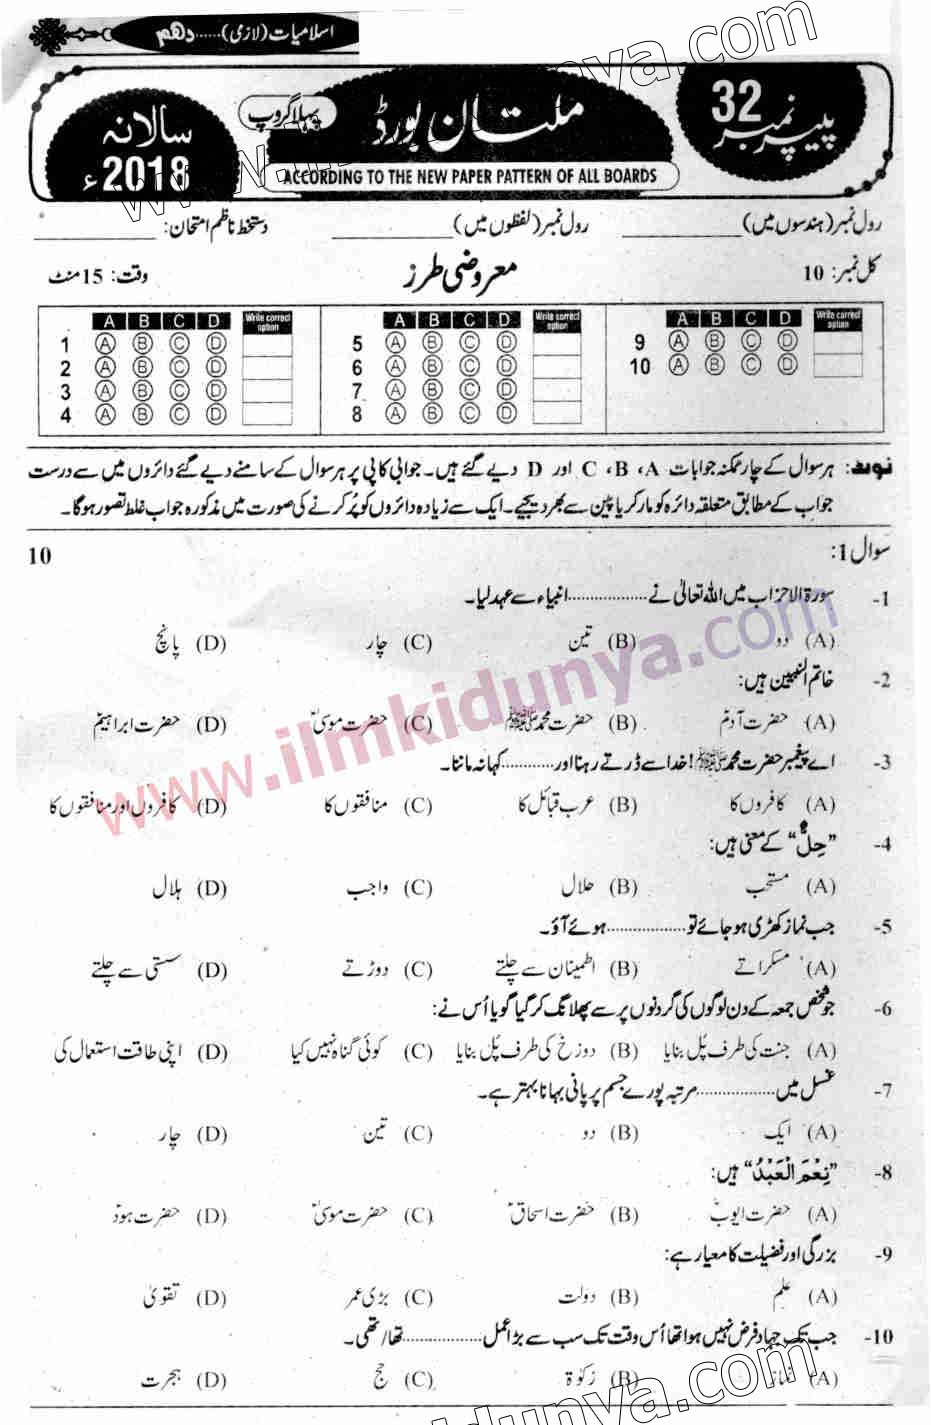 اسلامیات (لازمی)......دھم
سالانہ 2018ء
پہلا گروپ
ملتان بورڈ
پیپر نمبر 32
ACCORDING TO THE NEW PAPER PATTERN OF ALL BOARDS
رول نمبر (ہندسوں میں) ____________ رول نمبر (لفظوں میں) ____________ دستخط ناظم امتحان: ____________
کل نمبر: 10 معروضی طرز وقت: 15 منٹ
A B C D Write correct option A B C D Write correct option A B C D Write correct option
1 A B C D 5 A B C D 9 A B C D
2 A B C D 6 A B C D 10 A B C D
3 A B C D 7 A B C D
4 A B C D 8 A B C D
نوٹ: ہر سوال کے چار ممکنہ جوابات A، B، C اور D دیے گئے ہیں۔ جوابی کاپی پر ہر سوال کے سامنے دیے گئے دائروں میں سے درست
جواب کے مطابق متعلقہ دائرہ کو مارکر یا پین سے بھر دیجیے۔ ایک سے زیادہ دائروں کو پُر کرنے کی صورت میں مذکورہ جواب غلط تصور ہوگا۔
سوال 1: 10
1- سورۃ الاحزاب میں اللہ تعالیٰ نے ................ انبیاء سے عہد لیا۔
(A) دو (B) تین (C) چار (D) پانچ
2- خاتم النبیین ہیں:
(A) حضرت آدمؑ (B) حضرت محمد ﷺ (C) حضرت موسیٰؑ (D) حضرت ابراہیمؑ
3- اے پیغمبر حضرت محمد ﷺ! خدا سے ڈرتے رہنا اور ............ کہا نہ ماننا۔
(A) کافروں کا (B) عرب قبائل کا (C) منافقوں کا (D) کافروں اور منافقوں کا
4- ”حِلٌّ“ کے معنی ہیں:
(A) مستحب (B) حلال (C) واجب (D) ہلال
5- جب نماز کھڑی ہو جائے تو ................ ہوئے آؤ۔
(A) مسکراتے (B) اطمینان سے چلتے (C) دوڑتے (D) سستی سے چلتے
6- جو شخص جمعہ کے دن لوگوں کی گردنوں پر سے پھلانگ کر گیا گویا اُس نے:
(A) جنت کی طرف پُل بنایا (B) دوزخ کی طرف پُل بنایا (C) کوئی گناہ نہیں کیا (D) اپنی طاقت استعمال کی
7- غسل میں ................ مرتبہ پورے جسم پر پانی بہانا بہتر ہے۔
(A) ایک (B) دو (C) تین (D) چار
8- ”نِعْمَ الْعَبْدُ“ ہیں:
(A) حضرت ایوبؑ (B) حضرت اسحاقؑ (C) حضرت موسیٰؑ (D) حضرت ہودؑ
9- بزرگی اور فضیلت کا معیار ہے:
(A) علم (B) دولت (C) بڑی عمر (D) تقویٰ
10- جب تک جہاد فرض نہیں ہوا تھا اُس وقت تک سب سے بڑا عمل ................ تھا/تھی۔
(A) نماز (B) زکوٰۃ (C) حج (D) ہجرت
www.ilmkidunya.com